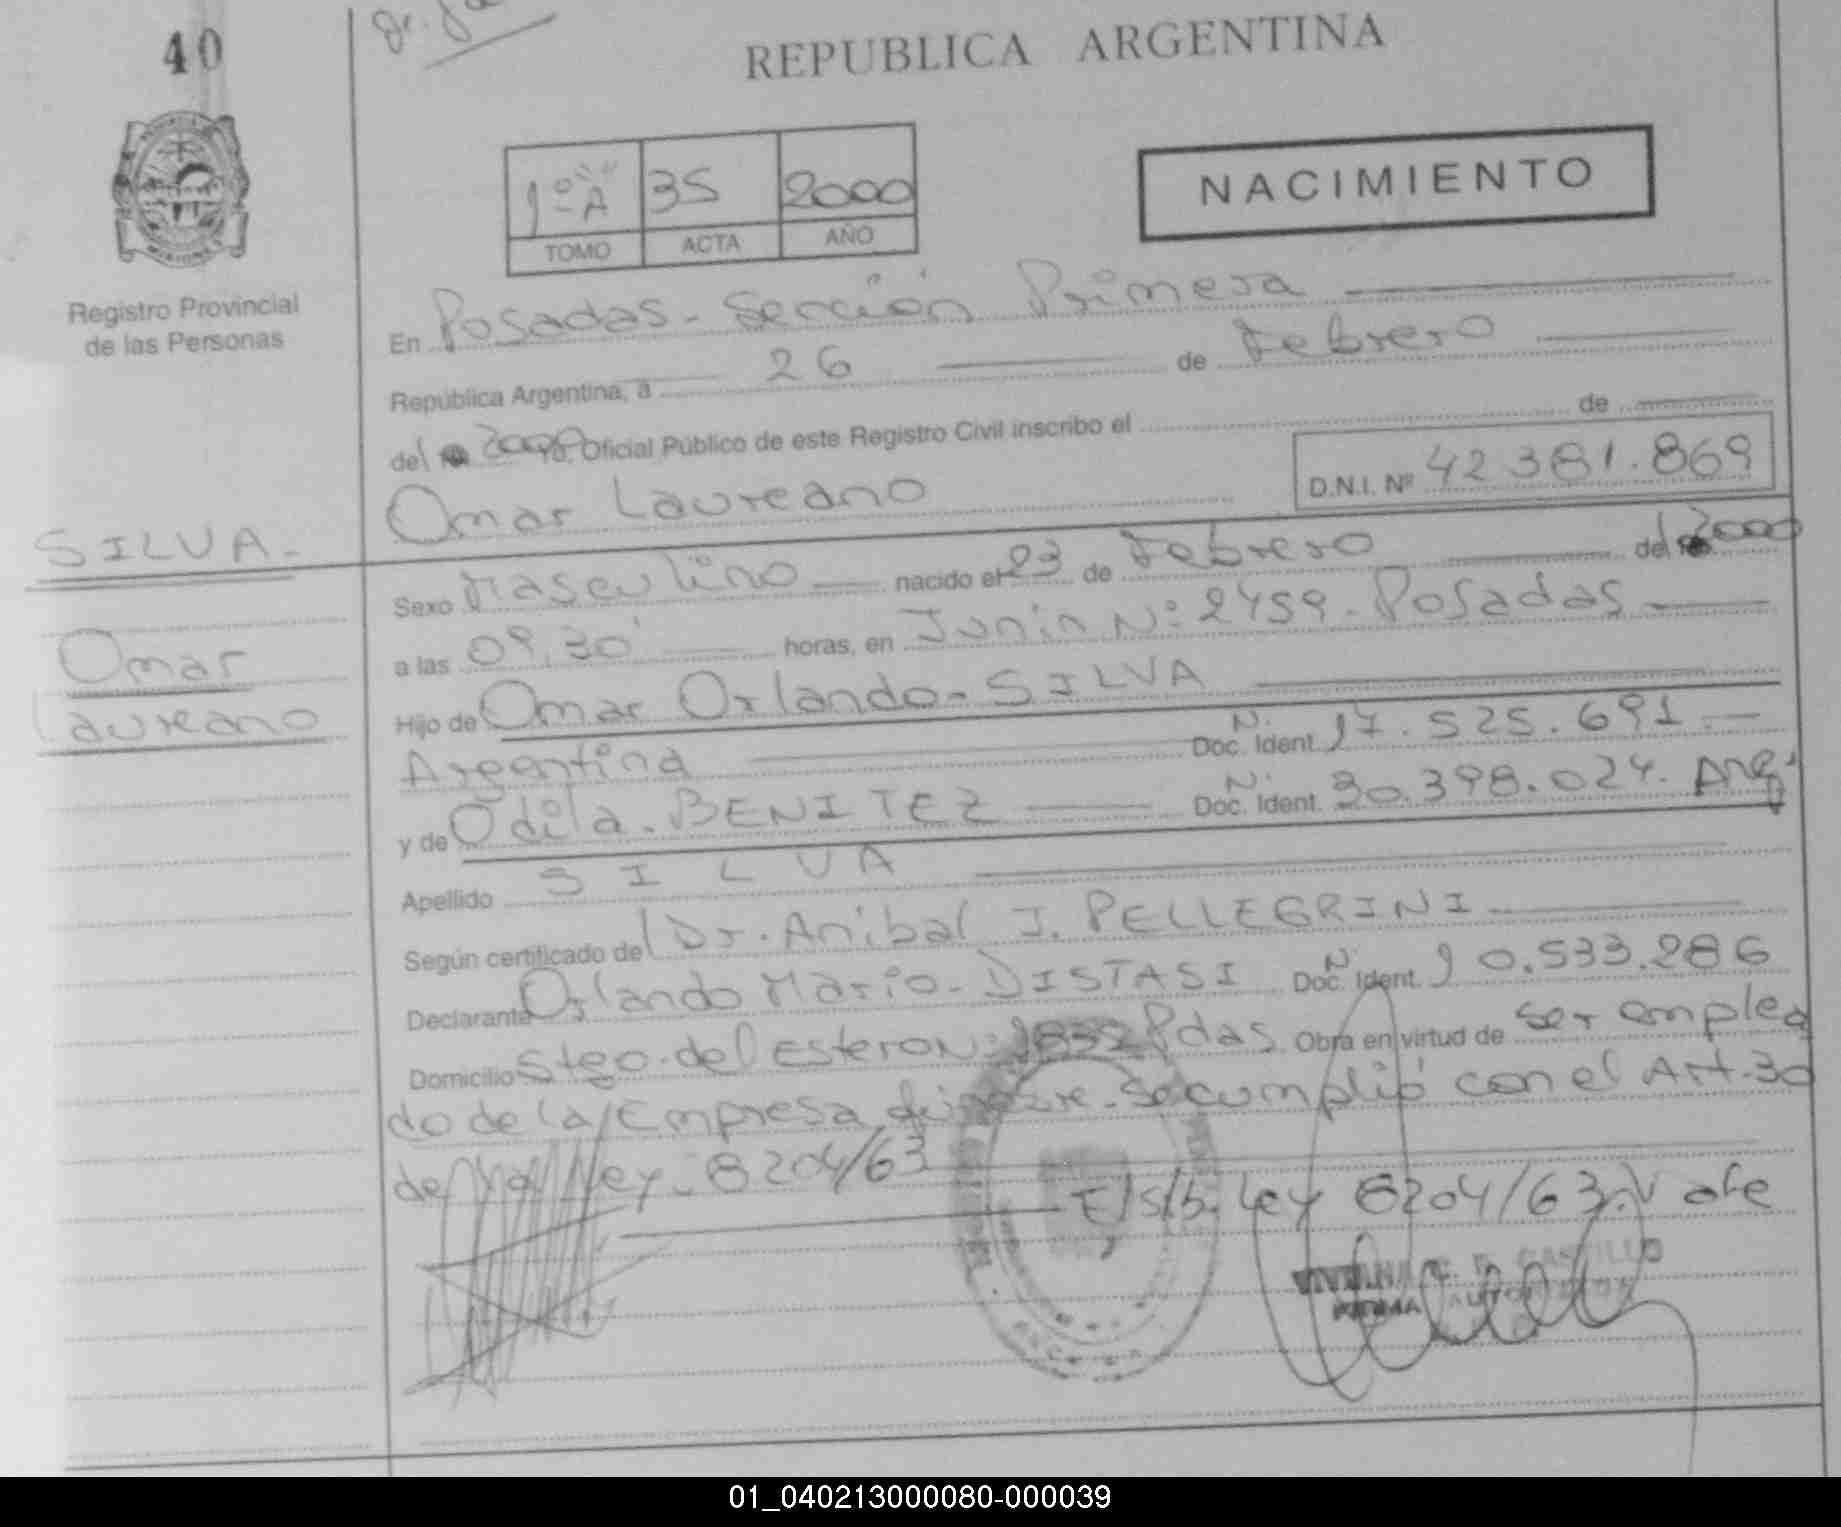 40
REPUBLICA ARGENTINA
1º "A" 35 2000
TOMO ACTA AÑO
NACIMIENTO
Registro Provincial
de las Personas
En Posadas - Sección Primera
República Argentina, a 26 de Febrero
del 2000 Yo, Oficial Público de este Registro Civil inscribo el de
Omar Laureano D.N.I. Nº 42 381.869
SILVA.-
Omar
Laureano
Sexo Masculino nacido el 23 de Febrero del 2000
a las 09,30' horas, en Junin Nº: 2459 - Posadas
Hijo de Omar Orlando - SILVA
Argentina N. Doc. Ident. 17.525.691.-
y de Odila - BENITEZ N. Doc. Ident. 30.398.024. Arg.
Apellido SILVA
Según certificado del Dr. Anibal J. PELLEGRINI
Declarante Orlando Mario - DISTASI N. Doc. Ident. 10.533.286
Domicilio Stgo. del Estero N: Pdas Obra en virtud de ser emplea
do de la Empresa - Se cumplió con el Art. 30
de la Ley - 8204/63
E/s/b. Ley 8204/63. Vale
VIVIANA CASTILLO
FIRMA AUTORIZADA
01_040213000080-000039